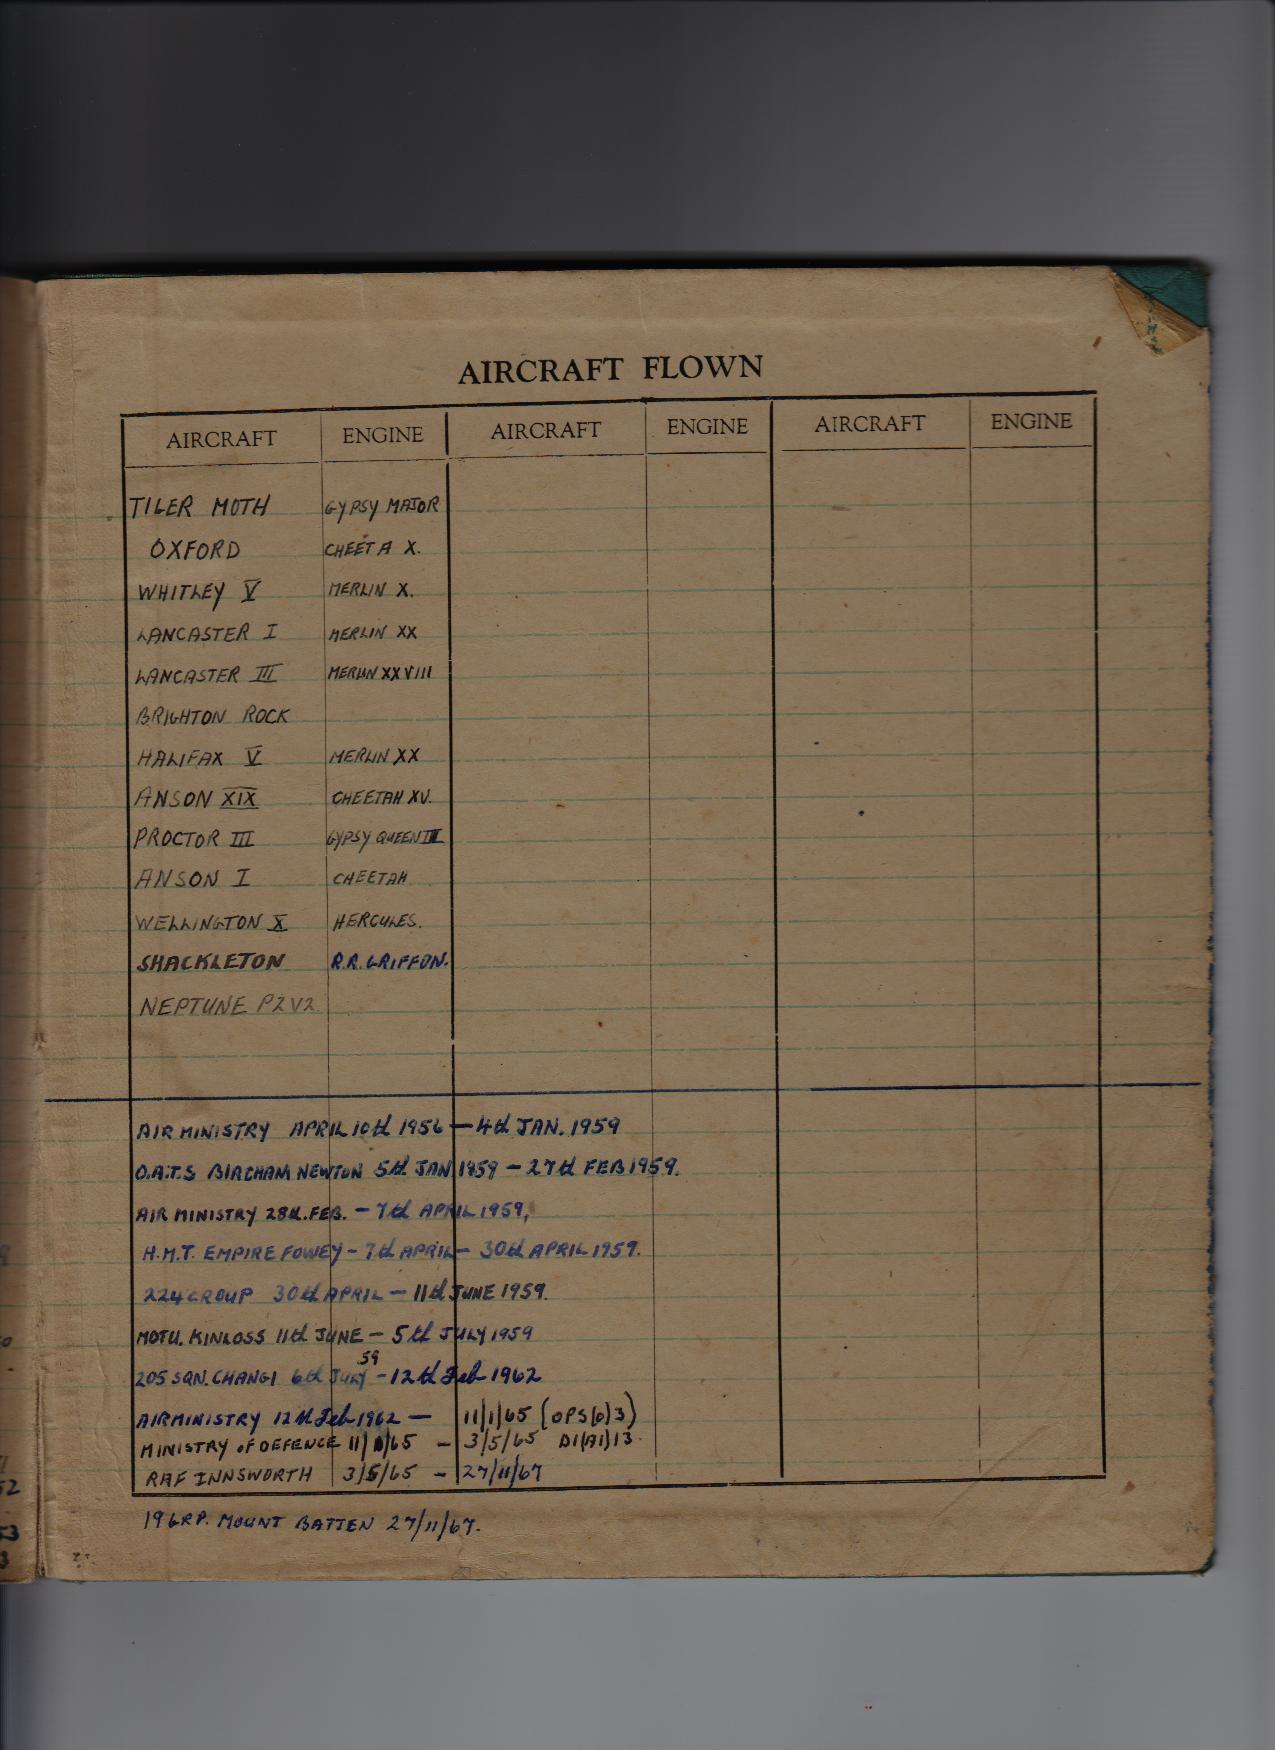 AIRCRAFT FLOWN
AIRCRAFT ENGINE AIRCRAFT ENGINE AIRCRAFT ENGINE
TIGER MOTH GYPSY MAJOR
OXFORD CHEETA X.
WHITLEY V MERLIN X.
LANCASTER I MERLIN XX
LANCASTER III MERLIN XXVIII
BRIGHTON ROCK
HALIFAX V MERLIN XX
ANSON XIX CHEETAH XV.
PROCTOR III GYPSY QUEEN II
ANSON I CHEETAH
WELLINGTON X HERCULES.
SHACKLETON R.R. GRIFFON.
NEPTUNE P2V2
AIR MINISTRY APRIL 10th 1956 — 4th JAN. 1959
O.A.T.S BIRCHAM NEWTON 5th JAN 1959 – 27th FEB 1959.
AIR MINISTRY 28th. FEB. – 7th APRIL 1959,
H.M.T. EMPIRE FOWEY – 7th APRIL – 30th APRIL 1959.
224 GROUP 30th APRIL – 11th JUNE 1959.
MOTU. KINLOSS 11th JUNE – 5th JULY 1959
205 SQN. CHANGI 6th JULY 59 – 12th Feb 1962
AIR MINISTRY 12th Feb 1962 — 11/1/65 (OPS(O)3)
MINISTRY OF DEFENCE 11/1/65 – 3/5/65 DI(AI)13.
RAF INNSWORTH 3/5/65 – 27/11/67
19 GRP. MOUNT BATTEN 27/11/67.
52
53
3